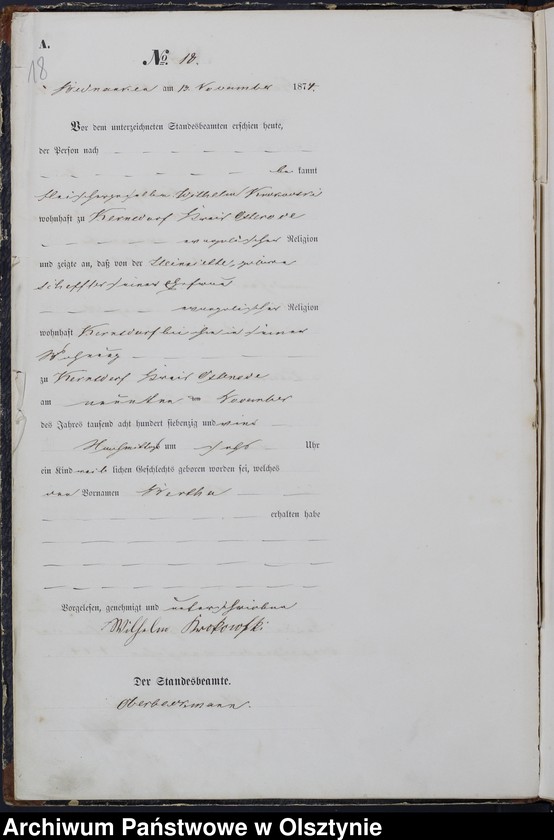 A.
18
No. 18.
am 13 November 1874.
Vor dem unterzeichneten Standesbeamten erschien heute,
der Person nach
be kannt
Wilhelm Krokowski
wohnhaft zu Kernsdorf Kreis Osterode
evangelischer Religion
und zeigte an, daß von der geborene
seiner Ehefrau
evangelischer Religion
wohnhaft Kernsdorf bei ihm in seiner
Wohnung
zu Kernsdorf Kreis Osterode
am neunten November
des Jahres tausend acht hundert siebenzig und vier
Nachmittags um sechs Uhr
ein Kind weib lichen Geschlechts geboren worden sei, welches
den Vornamen Bertha
erhalten habe
Vorgelesen, genehmigt und unterschrieben
Wilhelm Krokowski
Der Standesbeamte.
Oberbeckmann.
Archiwum Państwowe w Olsztynie